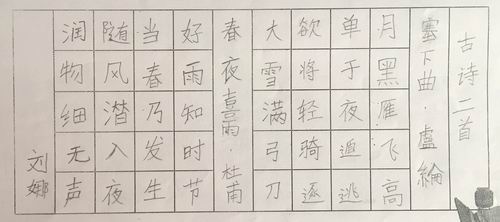 古诗二首
塞下曲·盧綸
月黑雁飞高
单于夜遁逃
欲将轻骑逐
大雪满弓刀
春夜喜雨·杜甫
好雨知时节
当春乃发生
随风潜入夜
润物细无声
刘娜